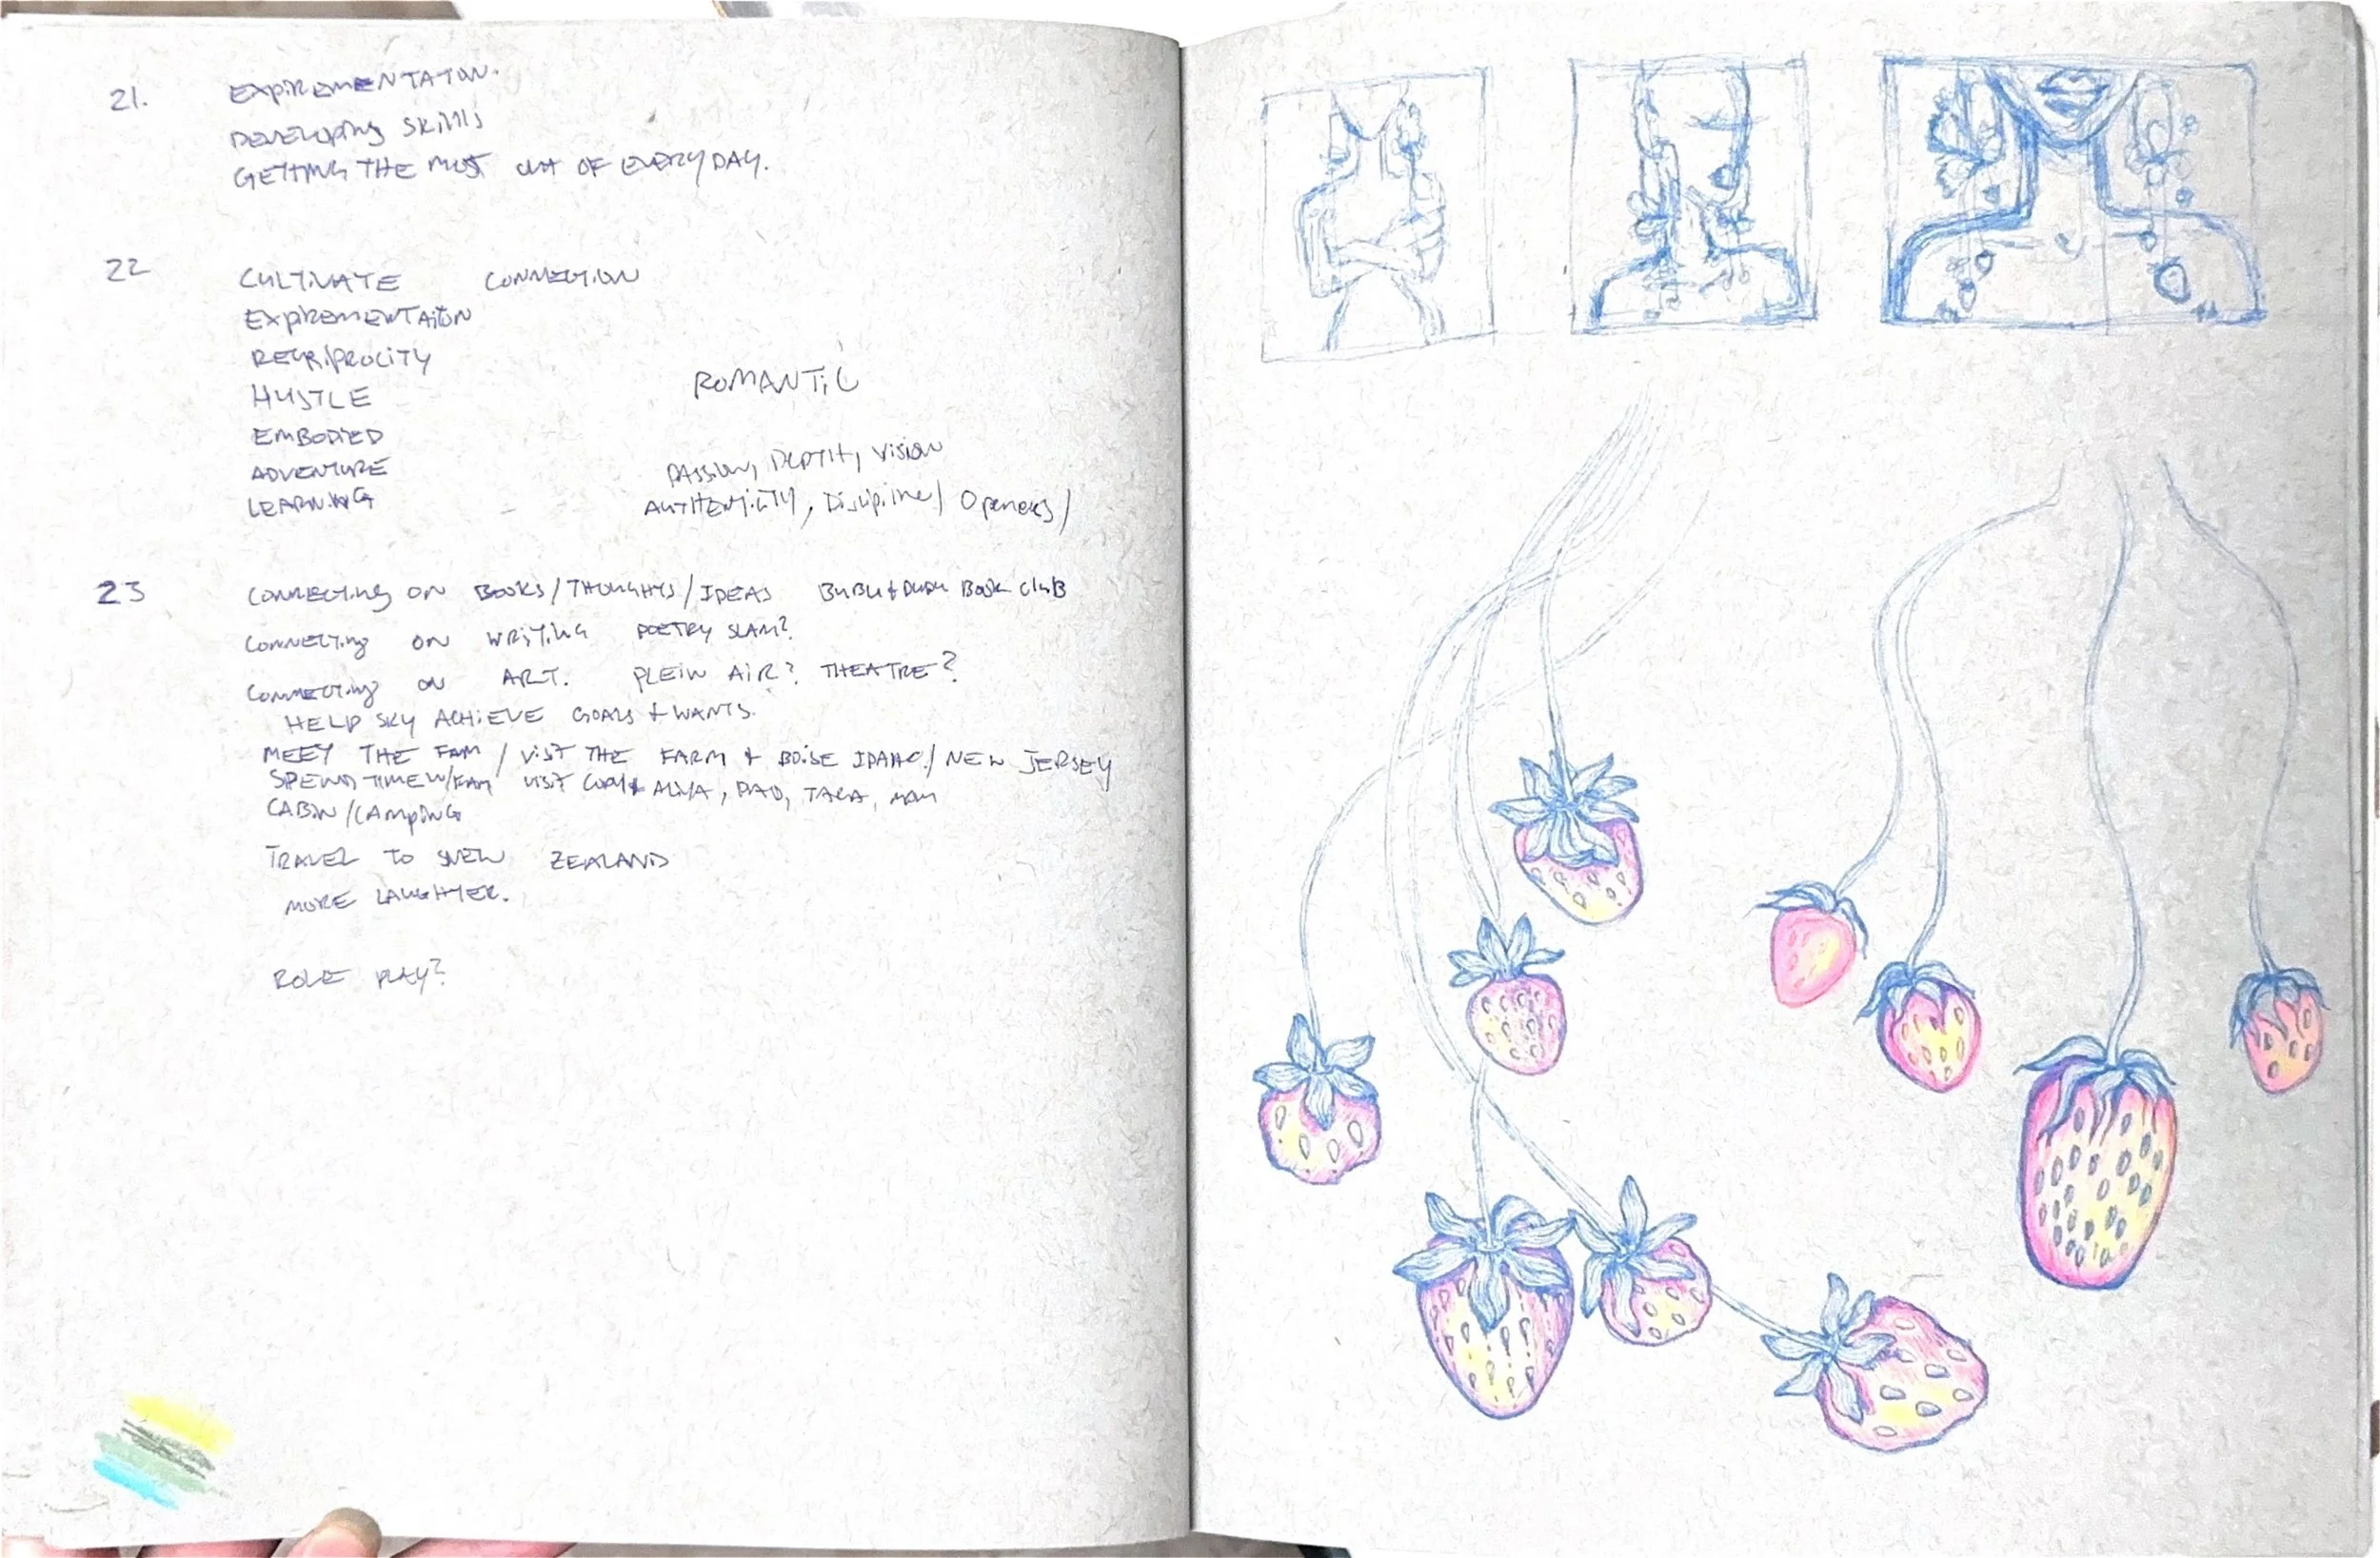 21. EXPIREMENTATION.
DEVELOPING SKILLS
GETTING THE MOST OUT OF EVERYDAY.
22 CULTIVATE CONNECTION
EXPIREMENTAITON
RECRIPROCITY
HUSTLE
ROMANTIC
EMBODIED
ADVENTURE
PASSION, DEPTH, VISION
LEARNING
AUTHENTICITY, Discipline/ Openess/
23 CONNECTING ON BOOKS/THOUGHTS/IDEAS BUBU & Book CLUB
CONNECTING ON WRITING POETRY SLAM?
CONNECTING ON ART. PLEIN AIR? THEATRE?
HELP SKY ACHIEVE GOALS & WANTS.
MEEY THE FAM / VISIT THE FARM & BOISE IDAHO/ NEW JERSEY
SPEND TIME W/FAM VISIT & DAD, TARA, MOM
CABIN/CAMPING
TRAVEL TO NEW ZEALAND
MORE LAUGHTER.
ROLE PLAY?